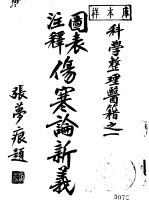 庫本样
科學整理醫籍之一
圖表
注釋
傷寒論新義
張夢痕題
5072